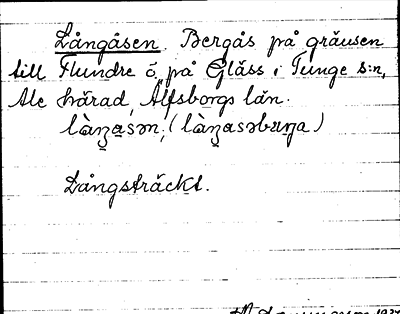 Långåsen. Bergås på gränsen
till Flundre ö, på Gläss i Tunge s:n,
Ale härad, Älfsborgs län.
Långsträckt.